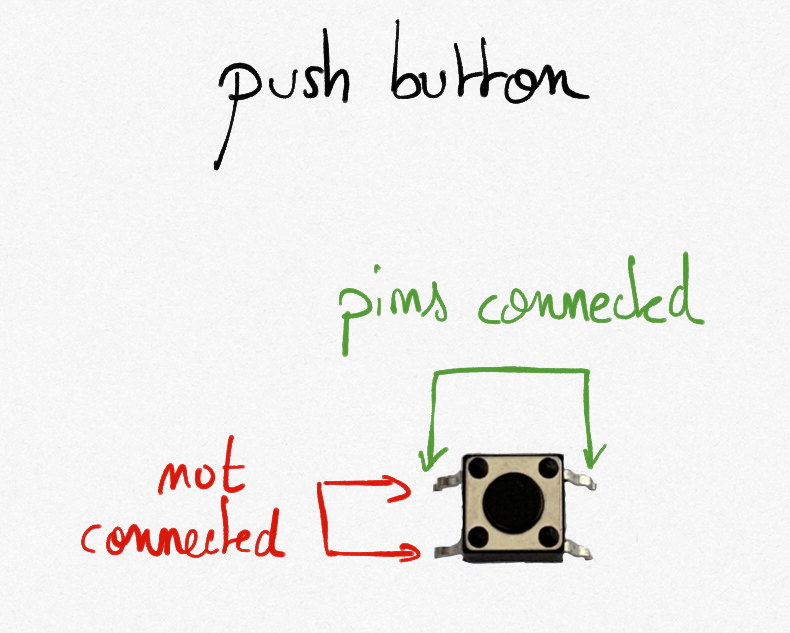 push button
pins connected
not
connected